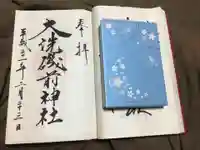 奉拝
大洗磯前神社
平成三一年二月十三日